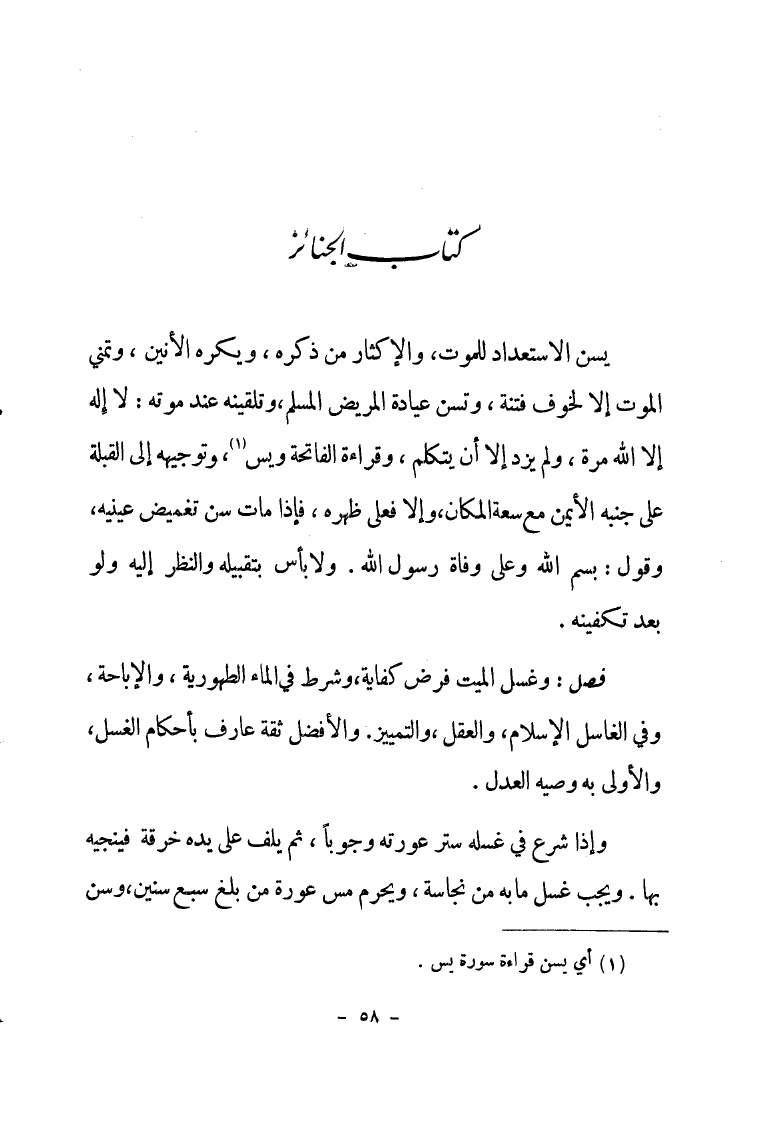 كتاب الجنائز
يسن الاستعداد للموت، والإكثار من ذكره ، ويكره الأنين ، وتمني
الموت إلا لخوف فتنة ، وتسن عيادة المريض المسلم،وتلقينه عند موته : لا إله
إلا الله مرة ، ولم يزد إلا أن يتكلم ، وقراءة الفاتحة ويس(١)، وتوجيهه إلى القبلة
على جنبه الأيمن مع سعة المكان،وإلا فعلى ظهره ، فإذا مات سن تغميض عينيه،
وقول : بسم الله وعلى وفاة رسول الله . ولا بأس بتقبيله والنظر إليه ولو
بعد تكفينه .
فصل : وغسل الميت فرض كفاية،وشرط في الماء الطهورية ، والإباحة ،
وفي الغاسل الإسلام، والعقل ،والتمييز. والأفضل ثقة عارف بأحكام الغسل،
والأولى به وصيه العدل .
وإذا شرع في غسله ستر عورته وجوباً ، ثم يلف على يده خرقة فينجيه
بها . ويجب غسل مابه من نجاسة ، ويحرم مس عورة من بلغ سبع سنين،وسن
(١) أي يسن قراءة سورة يس .
- ٥٨ -